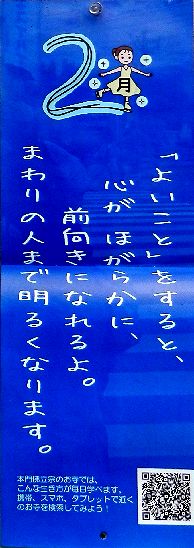 2月
「よいこと」をすると、
心が ほがらかに、
前向きになれるよ。
まわりの人まで明るくなります。
本門佛立宗のお寺では、
こんな生き方が毎日学べます。
携帯、スマホ、タブレットで近く
のお寺を検索してみよう！